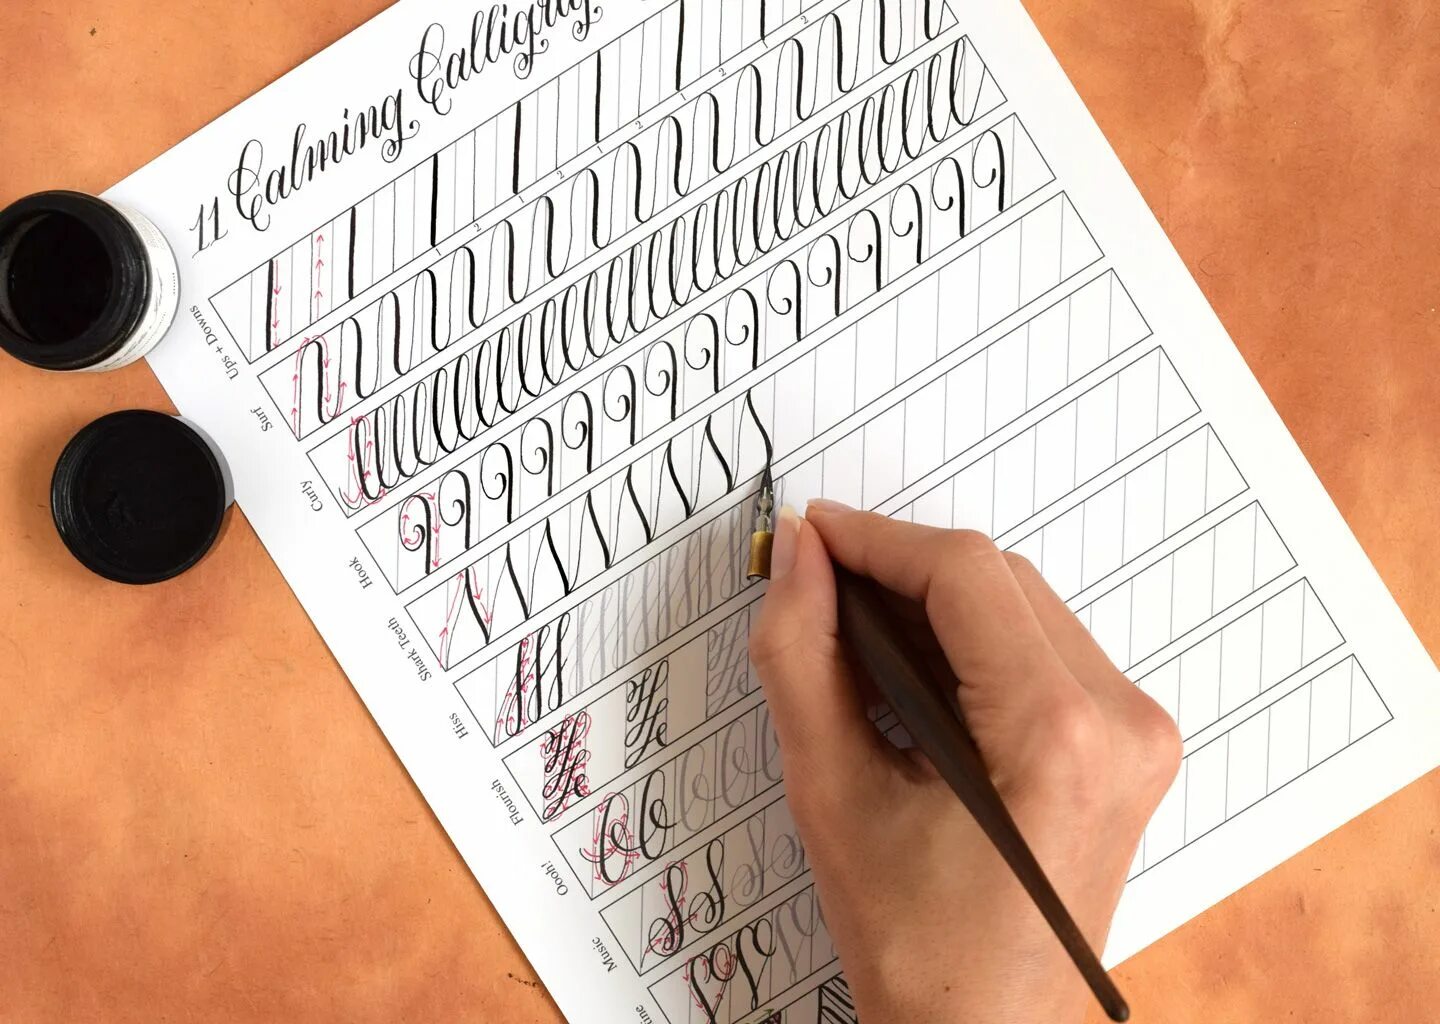 11 Calming Calligraphy
1 2 1 2 1 2 1 2 1 2
Ups + Downs
Surf
Curly
Hook
Shark Teeth
Hiss
Flourish
Oooh!
Music